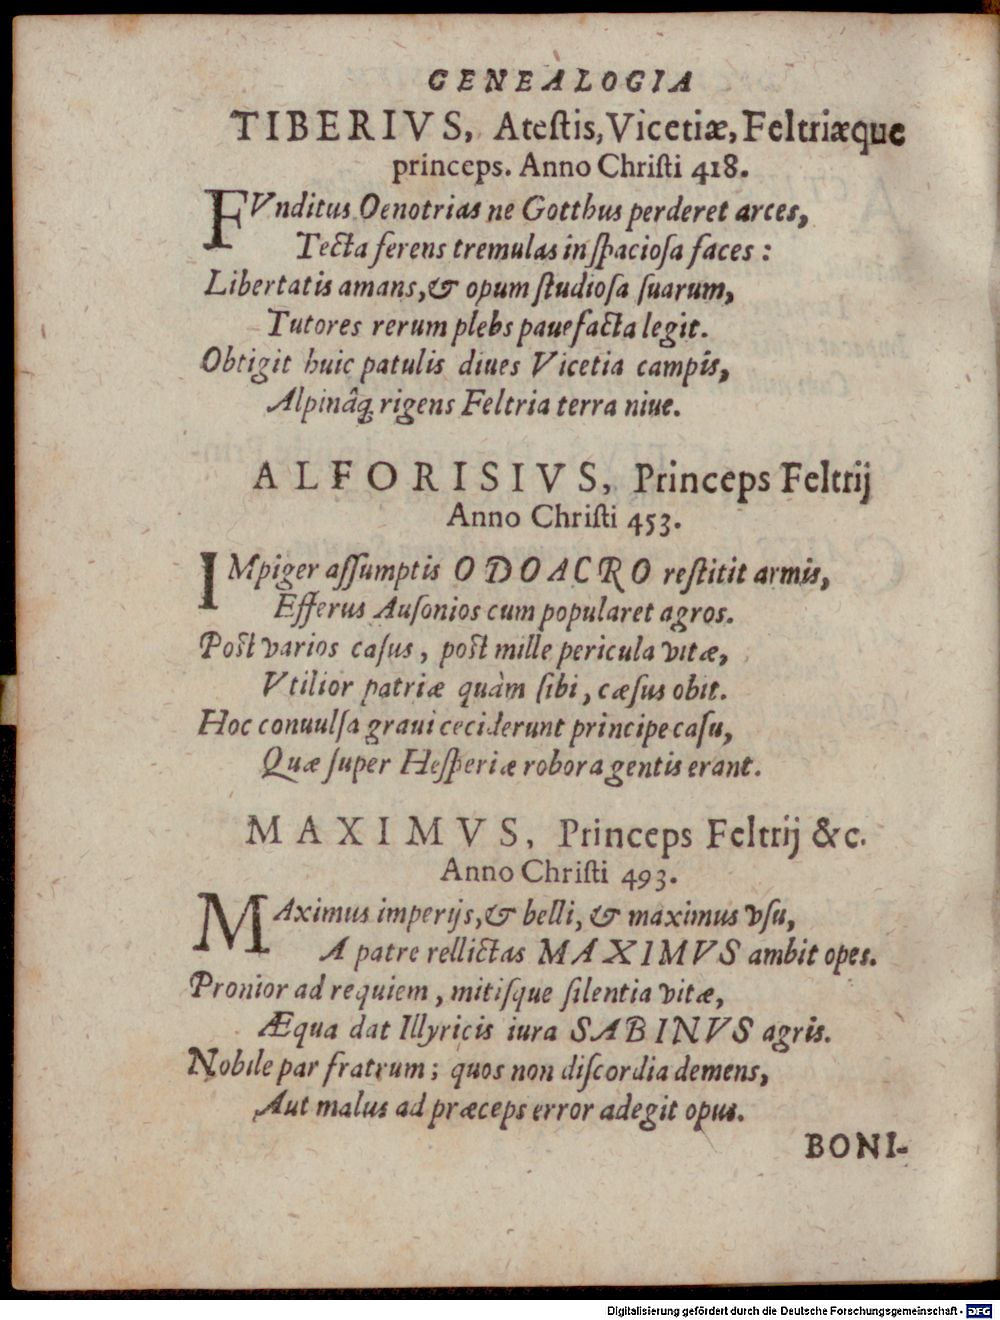 GENEALOGIA
TIBERIVS, Ateſtis, Vicetiæ, Feltriæque
princeps. Anno Chriſti 418.
FVnditus Oenotrias ne Gotthus perderet arces,
Tecta ferens tremulas in ſpacioſa faces :
Libertatis amans, & opum ſtudioſa ſuarum,
Tutores rerum plebs pauefacta legit.
Obtigit huic patulis diues Vicetia campis,
Alpinâq; rigens Feltria terra niue.
ALFORISIVS, Princeps Feltrij
Anno Chriſti 453.
IMpiger aſſumptis ODOACRO reſtitit armis,
Efferus Auſonios cum popularet agros.
Poſt varios caſus, poſt mille pericula vitæ,
Vtilior patriæ quàm ſibi, cæſus obit.
Hoc conuulſa graui ceciderunt principe caſu,
Quæ ſuper Heſperiæ robora gentis erant.
MAXIMVS, Princeps Feltrij &c.
Anno Chriſti 493.
MAximus imperijs, & belli, & maximus vſu,
A patre rellictas MAXIMVS ambit opes.
Pronior ad requiem, mitiſque ſilentia vitæ,
Æqua dat Illyricis iura SABINVS agris.
Nobile par fratrum; quos non diſcordia demens,
Aut malus ad præceps error adegit opus.
BONI-
Digitalisierung gefördert durch die Deutsche Forschungsgemeinschaft - DFG